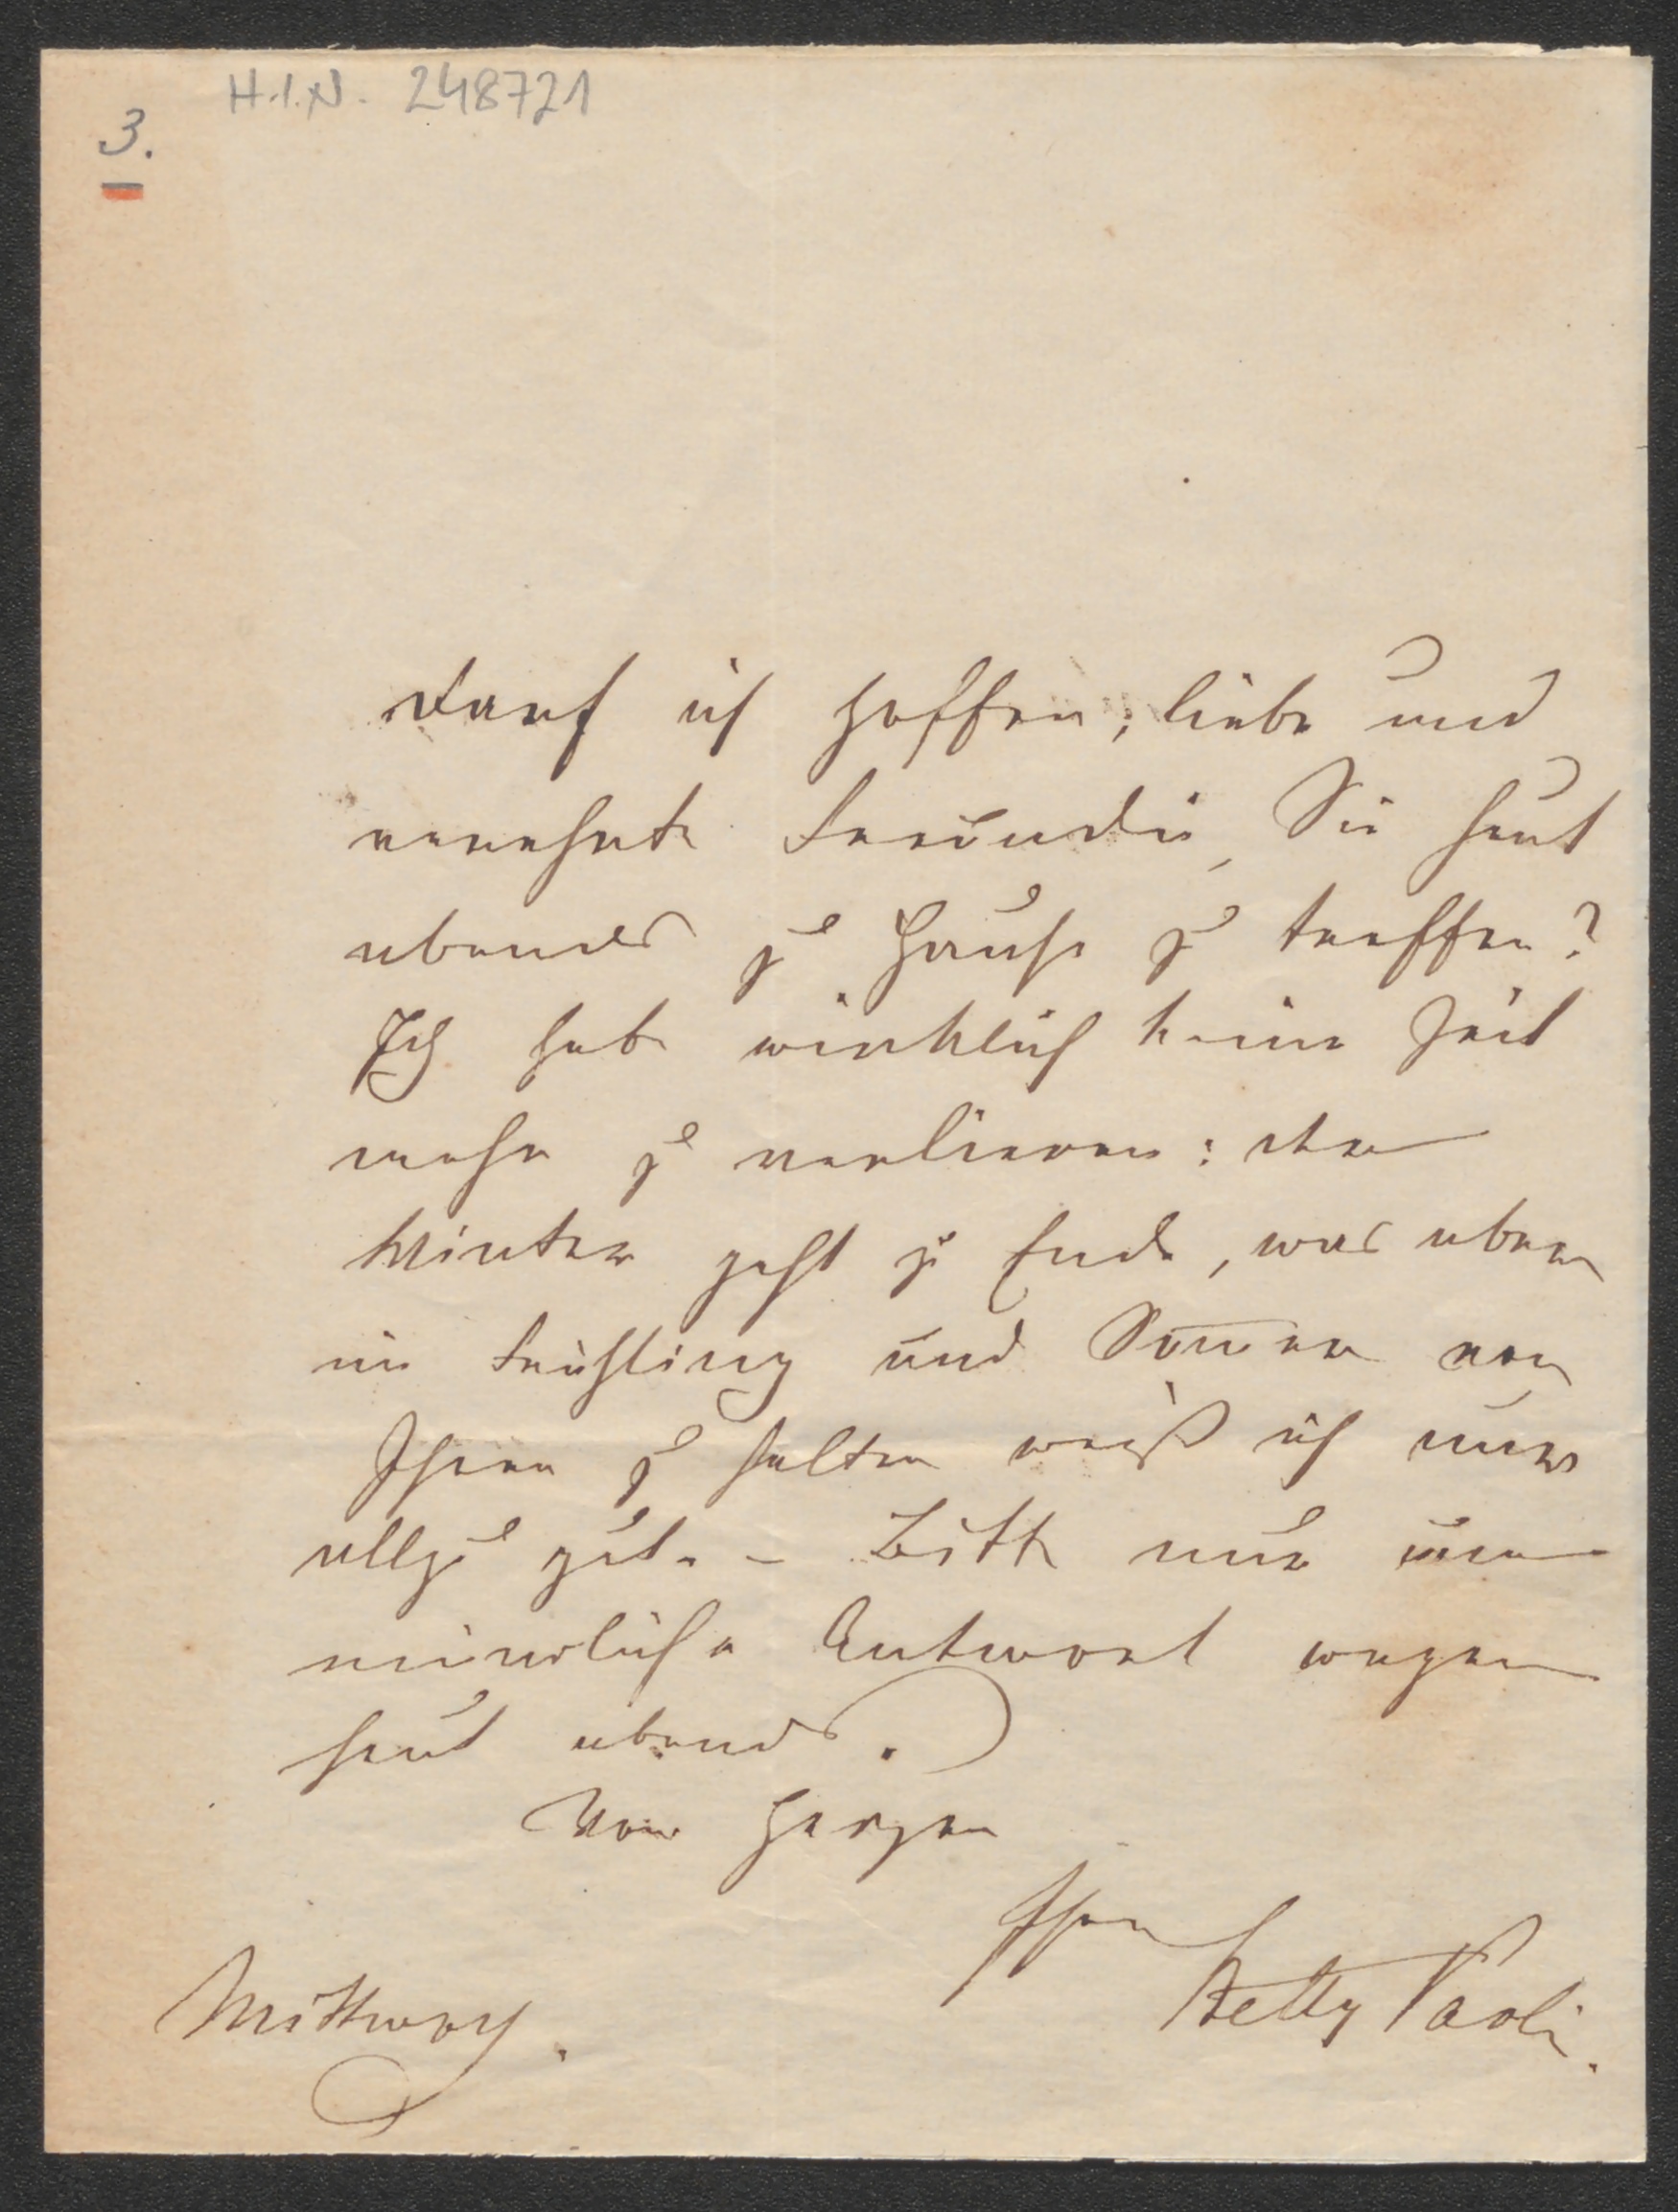 H.I.N. 248721
3.
Darf ich hoffen, liebe und
verehrte Freundin, Sie heut
abends zu Hause zu treffen?
Ich habe wirklich keine Zeit
mehr zu verlieren: der
Winter geht zu Ende, was aber
im Frühling und Som̄er von
Ihnen zu halten weiß ich nur
allzu gut. – Bitte nur um
mündliche Antwort wegen
heut abends.
Von Herzen
Ihre
Betty Paoli.
Mittwoch.